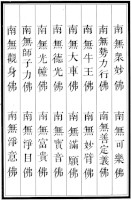 南無眾妙佛　南無可樂佛
南無勢力行佛　南無善定義佛
南無牛王佛　南無妙臂佛
南無大車佛　南無滿願佛
南無德光佛　南無寶音佛
南無光幢佛　南無富貴佛
南無師子力佛　南無淨目佛
南無觀身佛　南無淨意佛